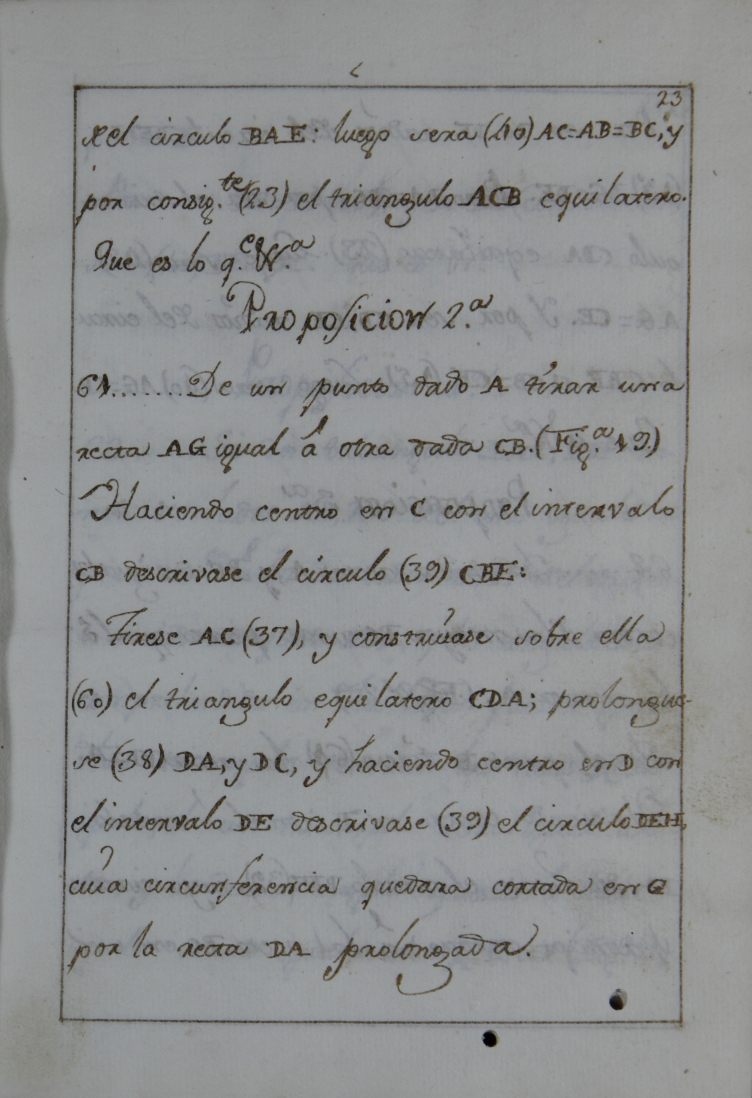 23
del circulo BAE: luego sera (40) AC=AB=BC; y
por consig.te (23) el triangulo ACB equilatero.
Que es lo q.e &.a
Proposicion 2.a
61........De un punto dado A tirar una
recta AG igual á otra dada CB. (Fig.a 19.)
Haciendo centro en C con el intervalo
CB descrivase el círculo (39) CBE:
Tirese AC (37), y construase sobre ella
(60) el triangulo equilatero CDA; prolongue-
se (38) DA, y DC, y haciendo centro en D con
el intervalo DE descrivase (39) el circulo DEH,
cuia circunferencia quedara cortada en G
por la recta DA prolongada.